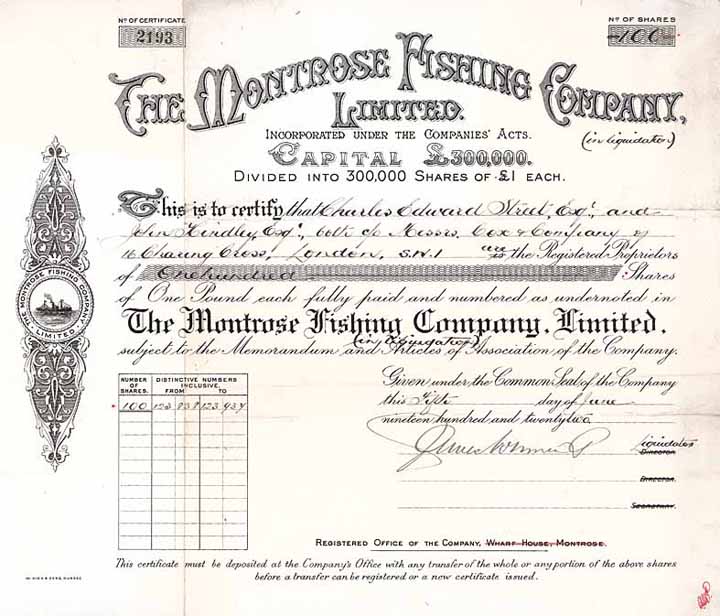 Nº OF CERTIFICATE
2193
Nº OF SHARES
100
THE MONTROSE FISHING COMPANY,
LIMITED.
(in liquidation)
INCORPORATED UNDER THE COMPANIES' ACTS.
CAPITAL £300,000.
DIVIDED INTO 300,000 SHARES OF £1 EACH.
This is to certify that Charles Edward Street, Esqr., and
John Hindley, Esqr., both c/o Messrs. Cox & Company of
16 Charing Cross, London, S.W.1 are is the Registered Proprietors
of One hundred Shares
of One Pound each fully paid and numbered as undernoted in
The Montrose Fishing Company, Limited,
(in liquidation)
subject to the Memorandum and Articles of Association of the Company.
THE MONTROSE FISHING COMPANY LIMITED
NUMBER OF SHARES.
DISTINCTIVE NUMBERS INCLUSIVE.
FROM TO
100 123,838 123,937
Given under the Common Seal of the Company
this Fifth day of June
nineteen hundred and twenty two
Liquidator
DIRECTOR
DIRECTOR.
SECRETARY.
REGISTERED OFFICE OF THE COMPANY, WHARF HOUSE, MONTROSE.
This certificate must be deposited at the Company's Office with any transfer of the whole or any portion of the above shares
before a transfer can be registered or a new certificate issued.